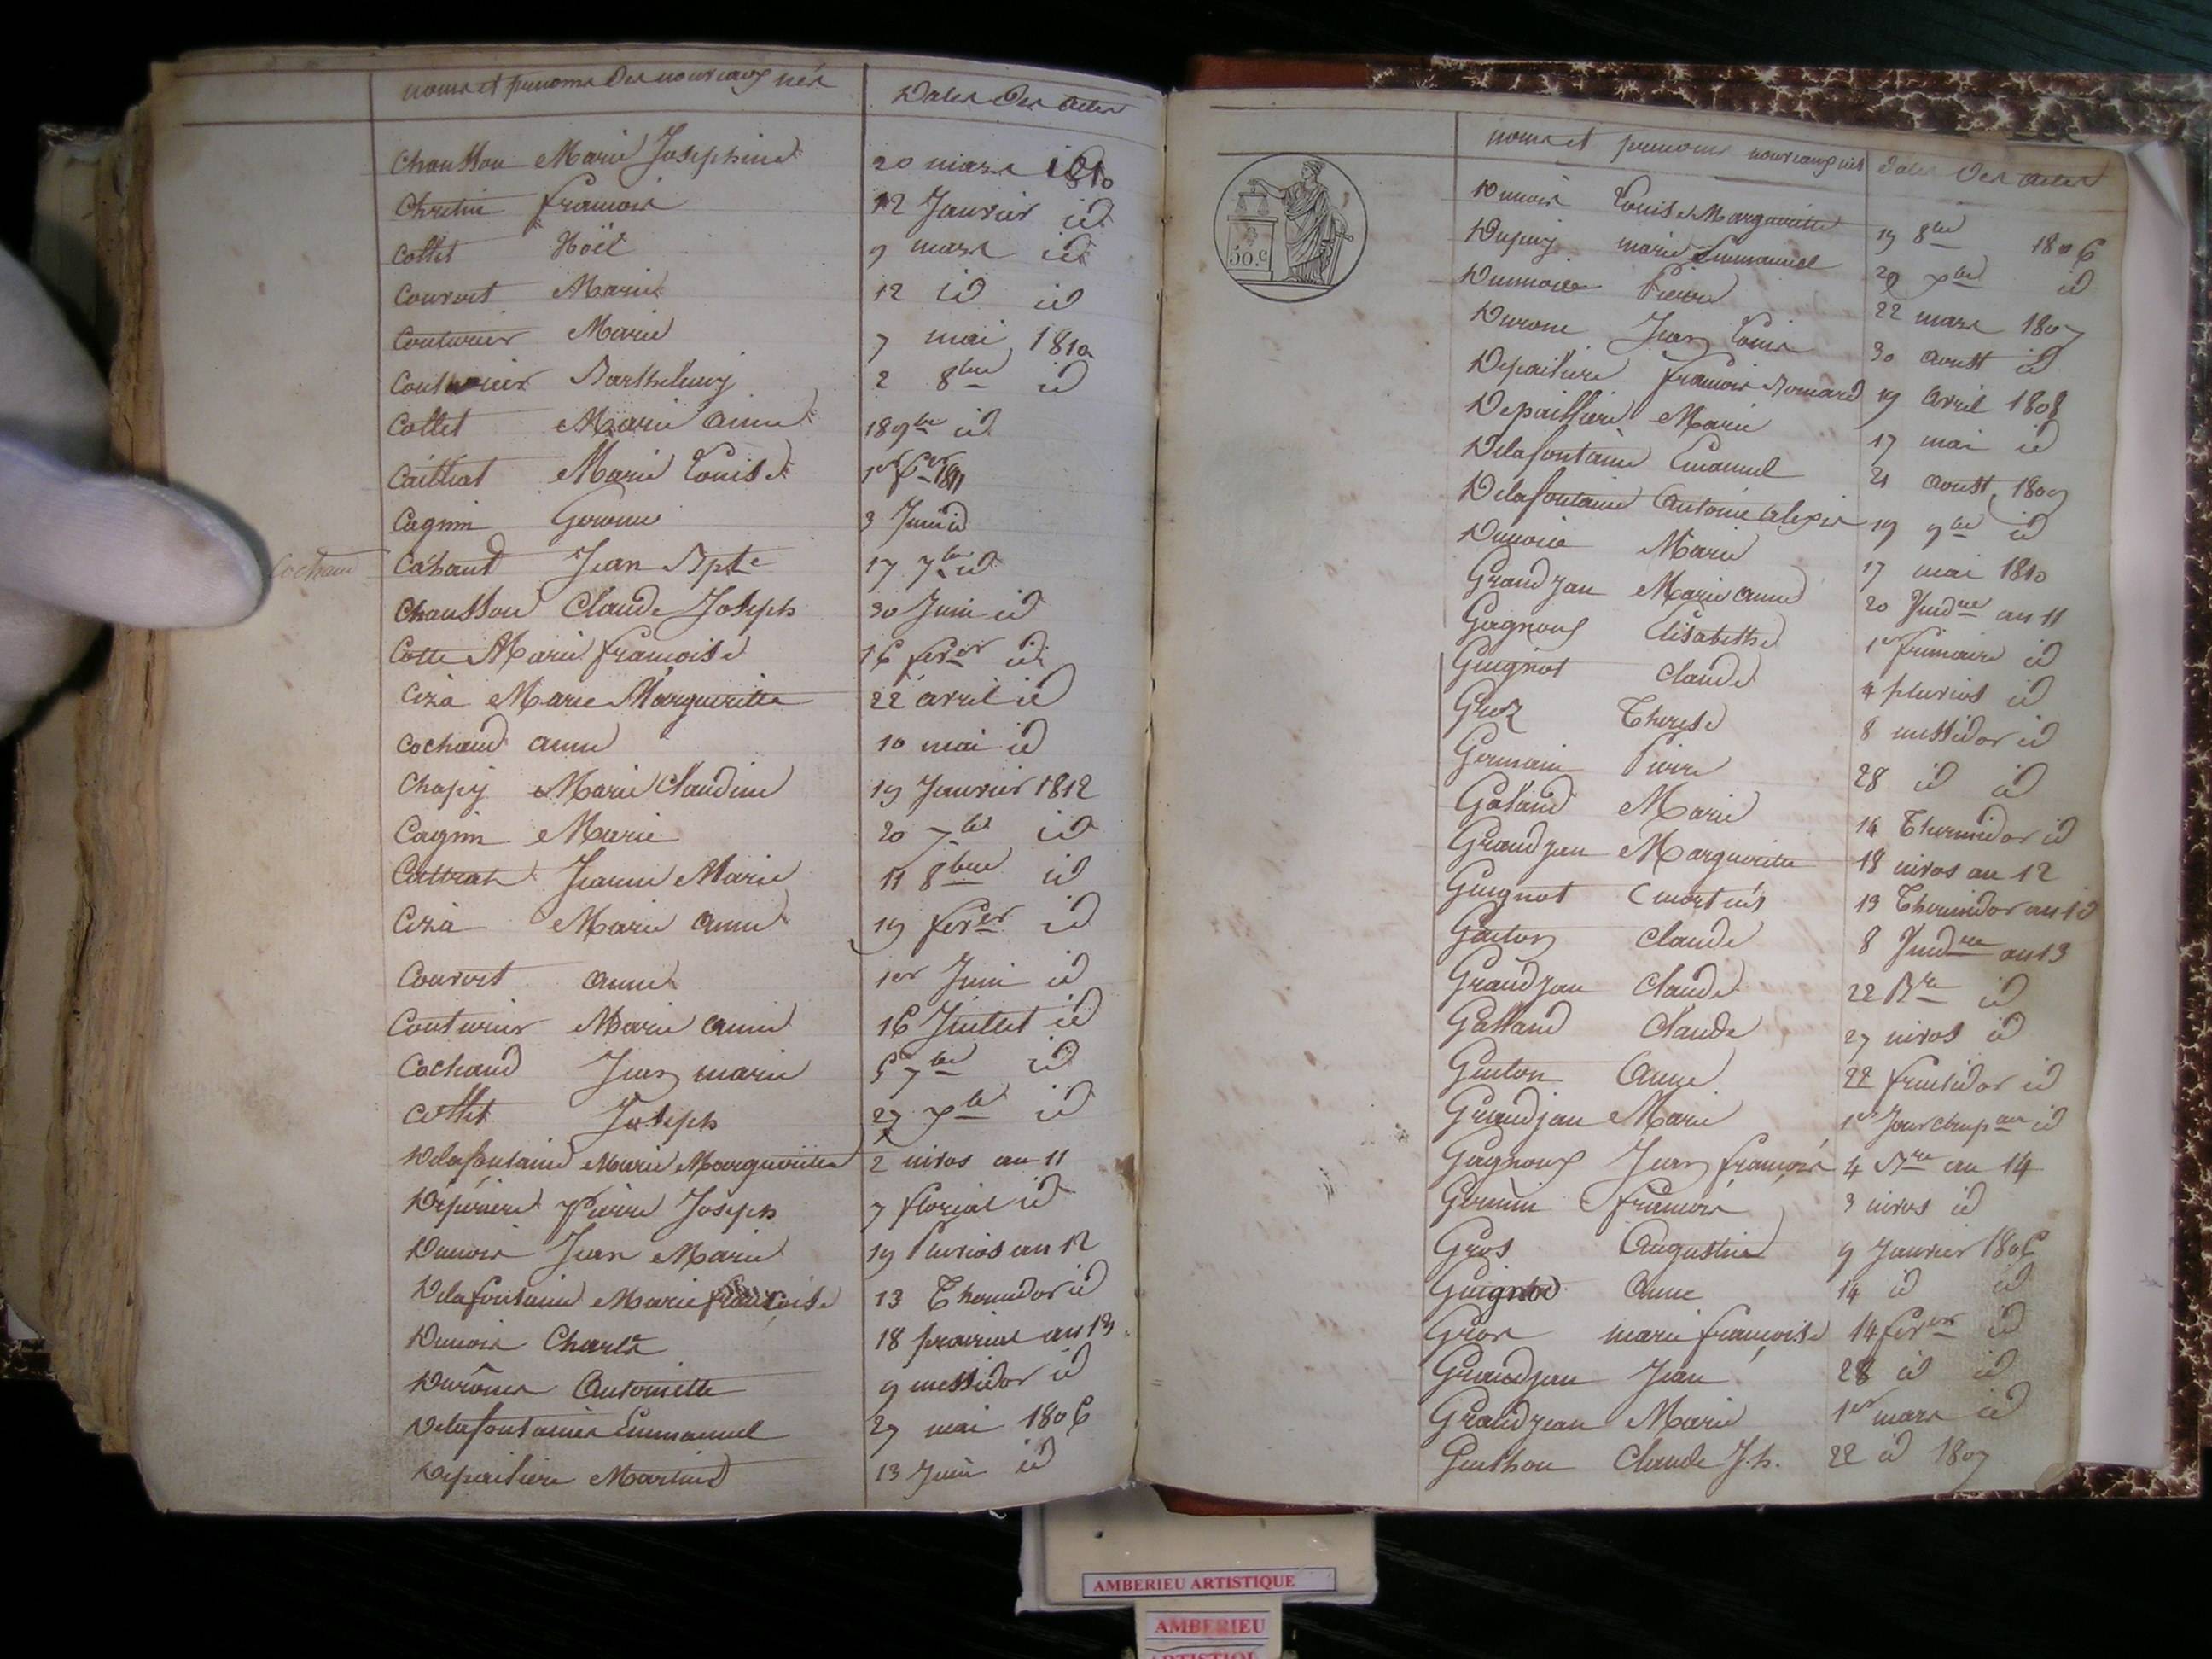 noms et prenoms Des nouveaux nés Dates Des actes
Chausson Marie Josephine 20 mars 1810
Chretin francois 12 Janvier id
Collet Noël 9 mars id
Couvert Marie 12 id id
Couturier Marie 7 mai 1810
Couturier Barthelemy 2 8bre id
Collet Marie anne 18 9bre id
Cailliat Marie Louise 1er fer 1811
Cagnin Gerome 3 Juin id
Cochaud Cahaud Jean Bpte 17 7bre id
Chausson Claude Joseph 30 Juin id
Cotte Marie françoise 16 fevrer id
Ciza Marie Margueritte 22 avril id
Cochaud anne 10 mai id
Chapuy Marie Claudine 19 Janvier 1812
Cagnin Marie 20 7bre id
Jeanne Marie 11 8bre id
Ciza Marie anne 19 fevrer id
Couvert anne 1er Juin id
Couturier Marie anne 16 Juillet id
Cochaud Jean marie 5 7bre id
Collet Joseph 27 xbre id
Delafontaine Marie Marguerite 2 nivos an 11
Deperiere Pierre Joseph 7 florial id
Dunois Jean Marie 19 Pluvios an 12
Delafontaine Marie françoise 13 Thermidor id
Dunois Charle 18 prairial an 13
Durôner Antoinette 9 messidor id
Delafontaine Emmanuel 27 mai 1806
Depailiere Martine 13 Juin id
noms et prenoms nouveaux nés Dates Des actes
50.c
Dunois Louise Marguerite 19 8bre 1806
Dupuy marie Emmanuel 29 xbre id
Dunoise Pierre 22 mars 1807
Durone Jean Louis 30 aoust id
Depailiere francois Romand 19 avril 1808
Depailliere Marie 17 mai id
Delafontaine Emanuel 21 aoust 1809
Delafontaine Antoine alexis 19 9bre id
Dunoise Marie 17 mai 1810
Grandjan Marie anne 20 Vendre an 11
Gagnoux Elisabethe 1er frimaire id
Guignot Claude 4 pluvios id
Groz Therese 8 messidor id
Germain Pierre 28 id id
Galand Marie 14 Thermidor id
Grandjan Marguerite 18 nivos an 12
Guignot (mort nés 13 Thermidor an id
Guiton Claude 8 Vendre an 13
Grandjan Claude 22 Bre id
Galland Claude 27 nivos id
Guiton Anne 22 fructidor id
Grandjan Marie 1er Jour comp an id
Gagnoux Jean françois 4 Bre an 14
Germin francois 3 nivos id
Gros Augustin 9 Janvier 1806
Guignod Anne 14 id id
Gros marie françoise 14 fevrer id
Grandjan Jean 28 id id
Grandjean Marie 1er mars id
Guithon Claude J.h. 22 id 1807
AMBERIEU ARTISTIQUE
AMBERIEU
ARTISTIQUE